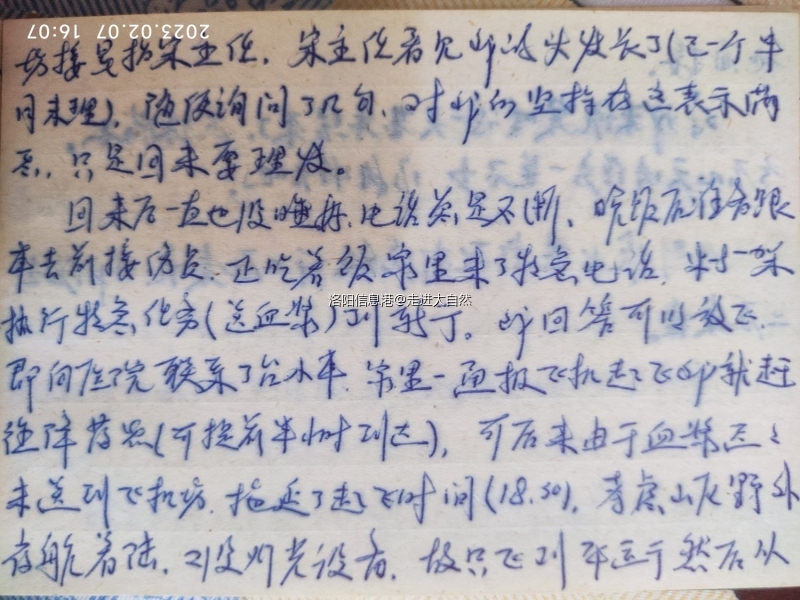 2023.02.07 16:07
场接吴指宋主任，宋主任看见我头发长了（已一个半
月未理），随便询问了几句，对我的坚持在这表示满
意，只是回来要理发。
回来后一直也没睡好，电话总是不断，晚饭后准备跟
车去前接伤员，正吃着饭家里来了特急电话，米-5一架
执行特急任务（送血浆）到，我回答可以放飞，
即向医院联系了台小车，家里一通报飞机起飞我就赶
往降落点（可提前半小时到达），可后来由于血浆迟迟
未送到飞机场，拖延了起飞时间（18.50），考虑山区野外
夜航着陆，又没灯光设备，故只飞到，然后从
洛阳信息港@走进大自然